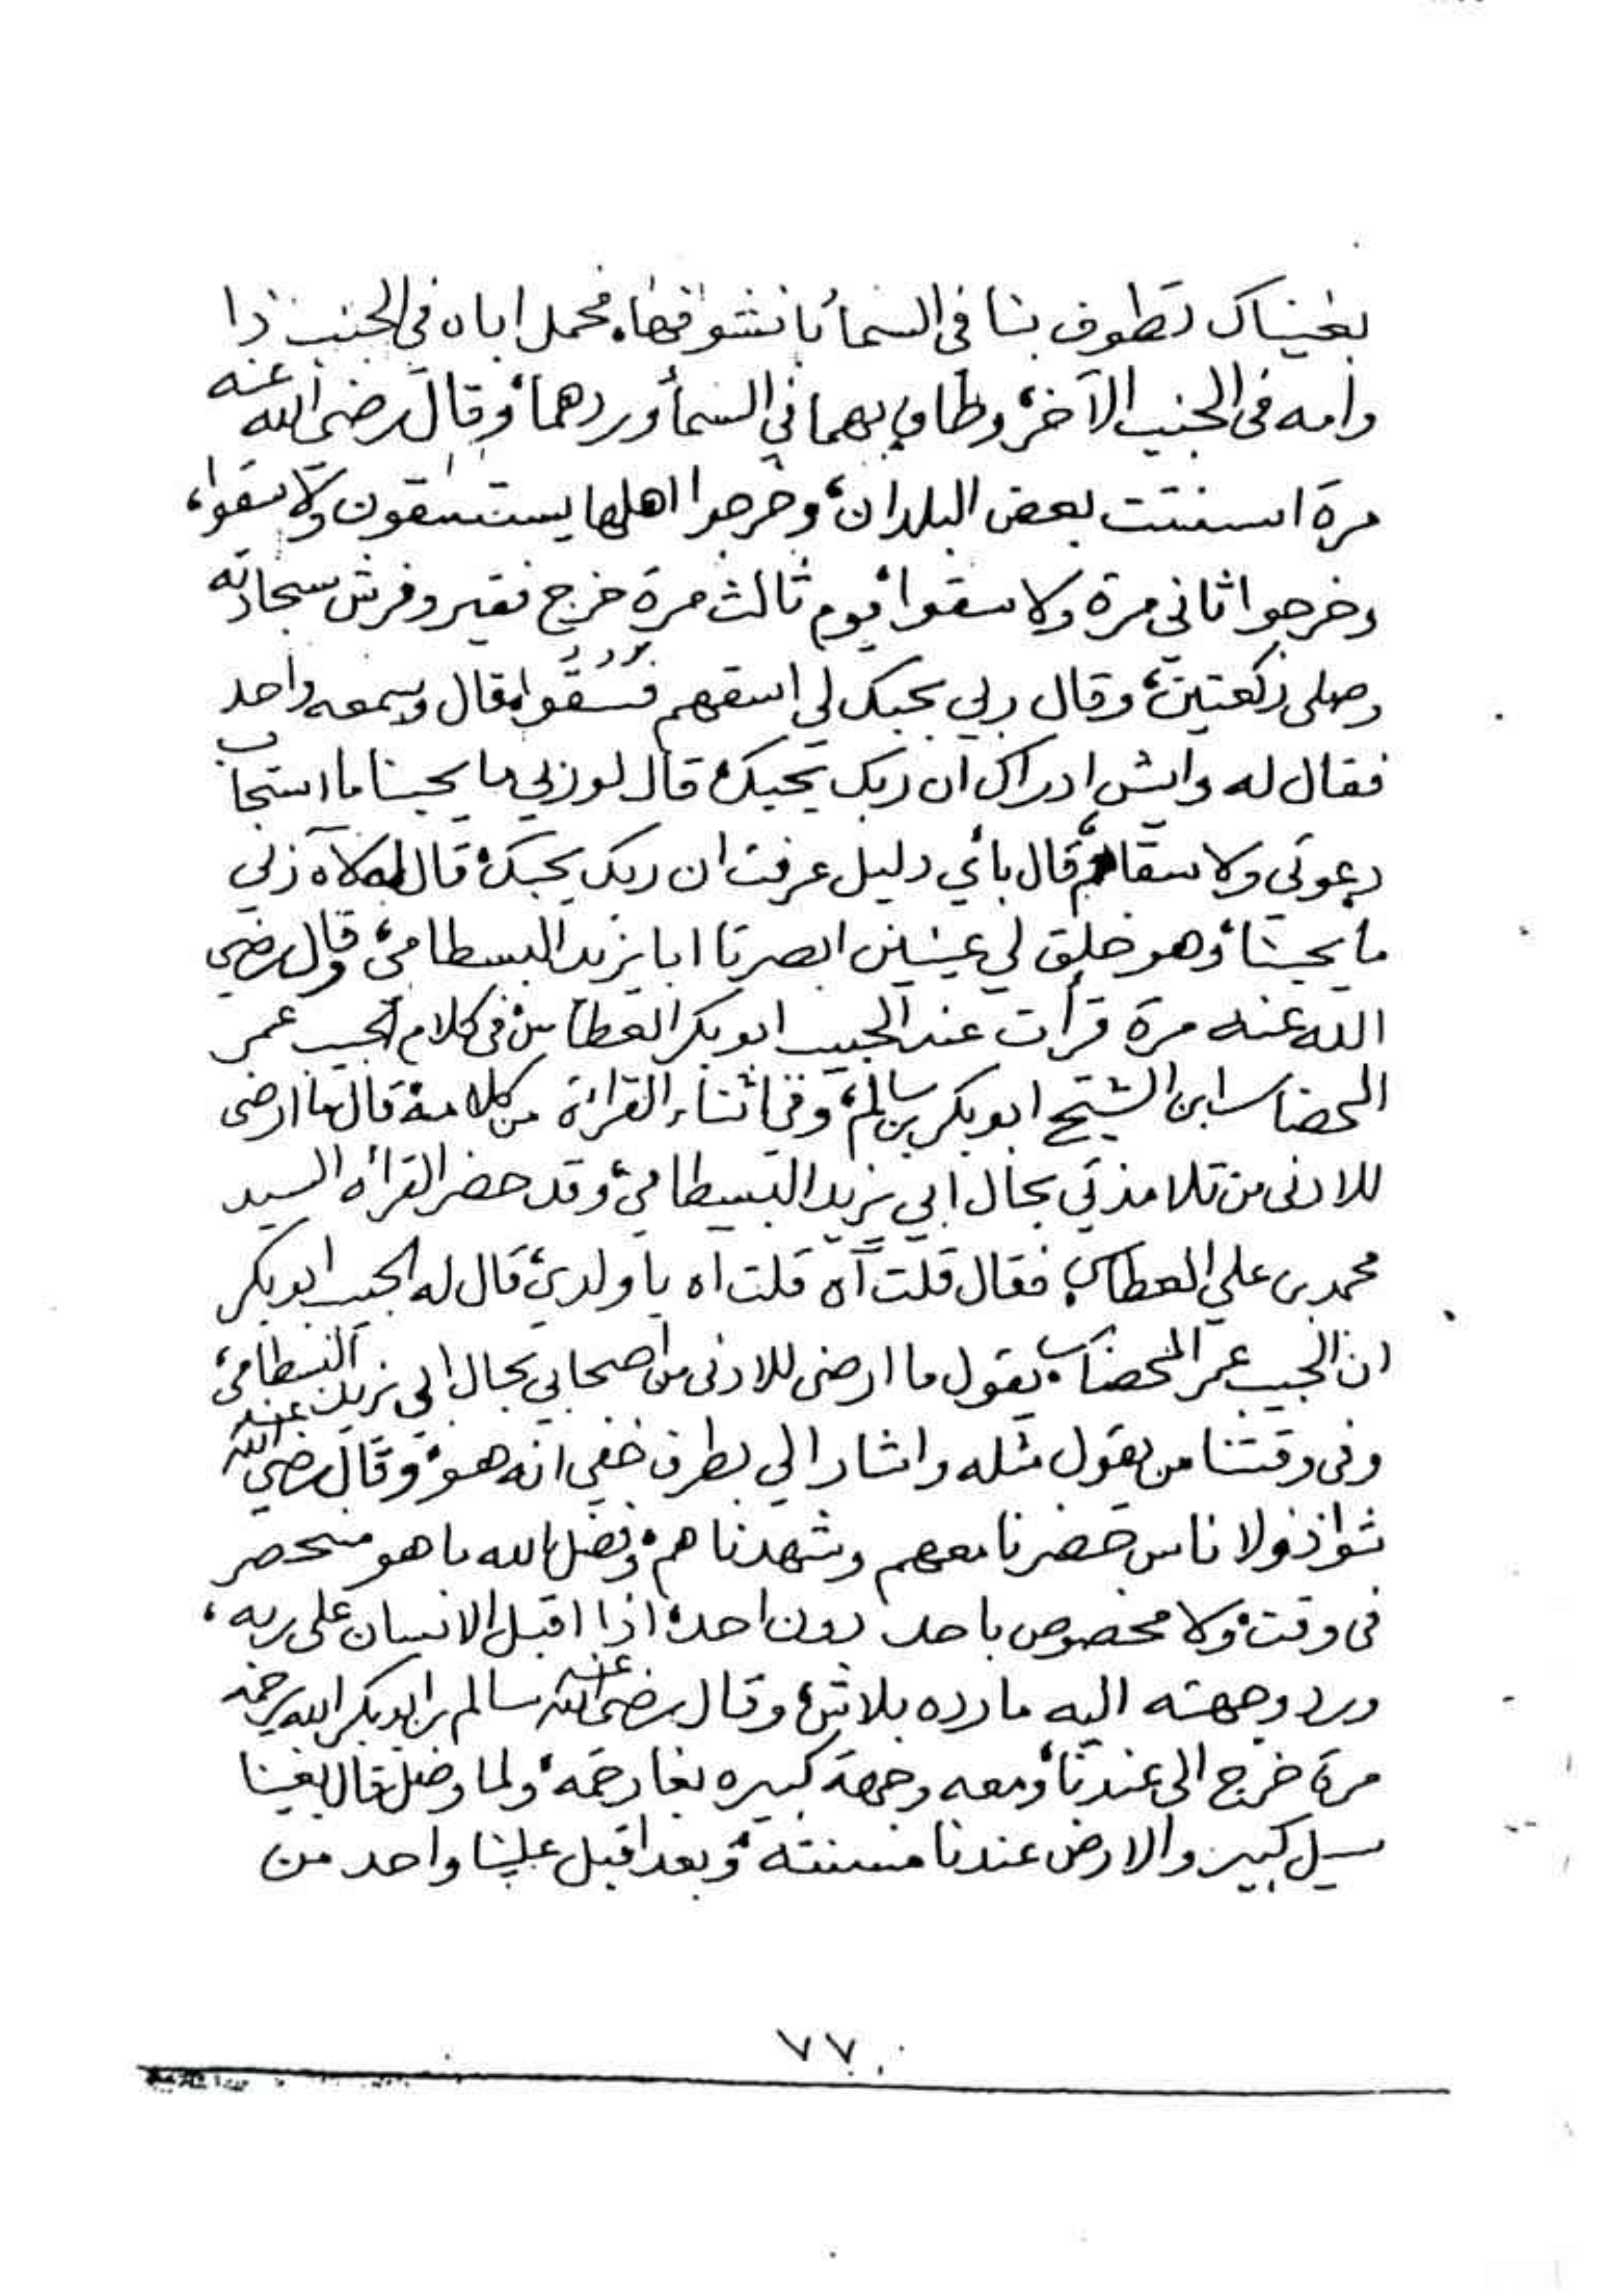 بغيناك تطوف بنا في السماء بانشوفها، فحمل اباه في الجنب ذا
وامه في الجنب الآخر، وطاف بهما في السماء وردهما، وقال رضي الله عنه
مرة اسنتت بعض البلدان، وخرجوا اهلها يستسقون ولا سقوا،
وخرجوا ثاني مرة ولا سقوا، يوم ثالث مرة خرج فقير وفرش سجادته
وصلى ركعتين، وقال ربي بحبك لي اسقهم فسقوا، قال ويسمعه واحد
فقال له وايش ادراك ان ربك يحبك، قال لو ربي ما يحبنا ما استجاب
دعوتي ولا سقاهم، قال بأي دليل عرفت ان ربك يحبك، قال له آه ربي
ما يحبنا، وهو خلق لي عينين ابصرتا ابا يزيد البسطامي، وقال رضي
الله عنه مرة قرأت عند الحبيب ابوبكر العطاس في كلام الحبيب عمر
المحضار ابن الشيخ ابوبكر بن سالم، وفي اثناء القراءة من كلامه قال ما ارضى
للادنى من تلامذتي بحال ابي يزيد البسطامي، وقد حضر القرأه السيد
محمد بن علي العطاس، فقال قلت آه قلت اه يا ولدي، قال له الحبيب ابوبكر
ان الحبيب عمر المحضار يقول ما ارضى للادنى من اصحابي بحال ابي يزيد البسطامي،
وفي وقتنا من يقول مثله واشار الي بطرف خفي انه هو، وقال رضي الله عنه
شوا ذولا ناس حضرنا معهم وشهدناهم، وفضل الله ما هو منحصر
في وقت، ولا مخصوص باحد دون احد، اذا اقبل الانسان على ربه،
ورد وجهته اليه ما رده بلاش، وقال رضي الله عنه سالم بن ابوبكر الله يرحمه
مرة خرج الى عندنا، ومعه وجهة كبيره بغا رحمه، ولما وصل قال بغينا
سيل كبير والارض عندنا مسنته، وبعد اقبل علينا واحد من
٧٧